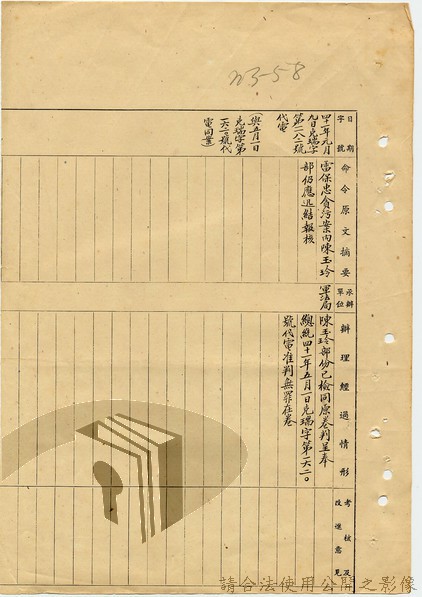 n3-58
日期
字號
命令原文摘要
承辦
單位
辦理經過情形
考核及
改進意見
四十一年九月
九日克瑞字
第二八二號
代電
雷保忠貪污案內陳玉玲
部仍應迅結報核
軍法局
陳玉玲部份已檢同原卷判呈奉
總統四十一年五月一日克瑞字第一六二〇
號代電准判無罪在卷
(與五月一日
克瑞字第
一六二〇號代
電同案)
請合法使用公開之影像